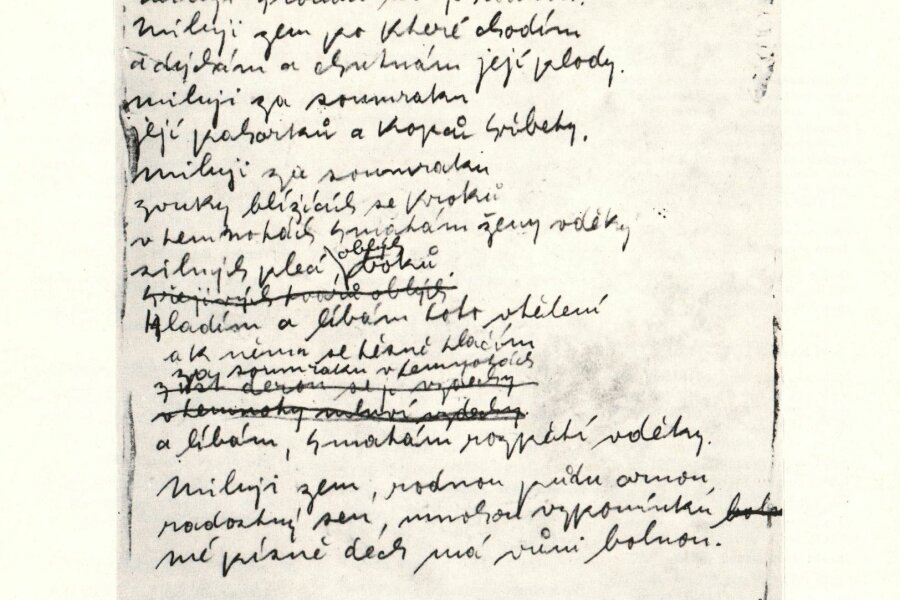 Miluji zem po které chodím
a dýchám a chutnám její plody.
miluji za soumraku
její pahorků a kopců hřbety.
Miluji za soumraku
zvuky blížících se kroků
v temnotách hmatám ženy vděky
silných plecí, oblých boků
hladím a líbám toto vtělení
a k němu se těsně tlačím
za soumraku v temnotách
z úst derou se vzdechy
v temnoty mluví vzdechy
a líbám, hmatám rozpětí vděky.
Miluji zem, rodnou půdu ornou,
radostný sen, mnohou vzpomínku
mé písně dech má vůni bolnou.